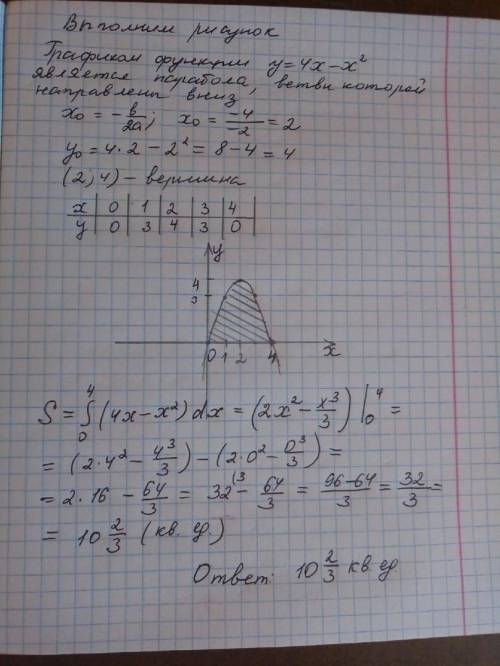 Выполним рисунок
Графиком функции y=4x-x²
является парабола, ветви которой
направлены вниз
x₀ = -b/2a; x₀ = -4/-2 = 2
y₀ = 4·2 - 2² = 8-4 = 4
(2; 4) - вершина
x | 0 | 1 | 2 | 3 | 4 |
y | 0 | 3 | 4 | 3 | 0 |
y
4
3
0 1 2 4 x
S = ∫₀⁴ (4x-x²) dx = (2x² - x³/3) |₀⁴ =
= (2·4² - 4³/3) - (2·0² - 0³/3) =
= 2·16 - 64/3 = 32⁽³ - 64/3 = 96-64/3 = 32/3 =
= 10 2/3 (кв. ед.)
Ответ: 10 2/3 кв. ед.